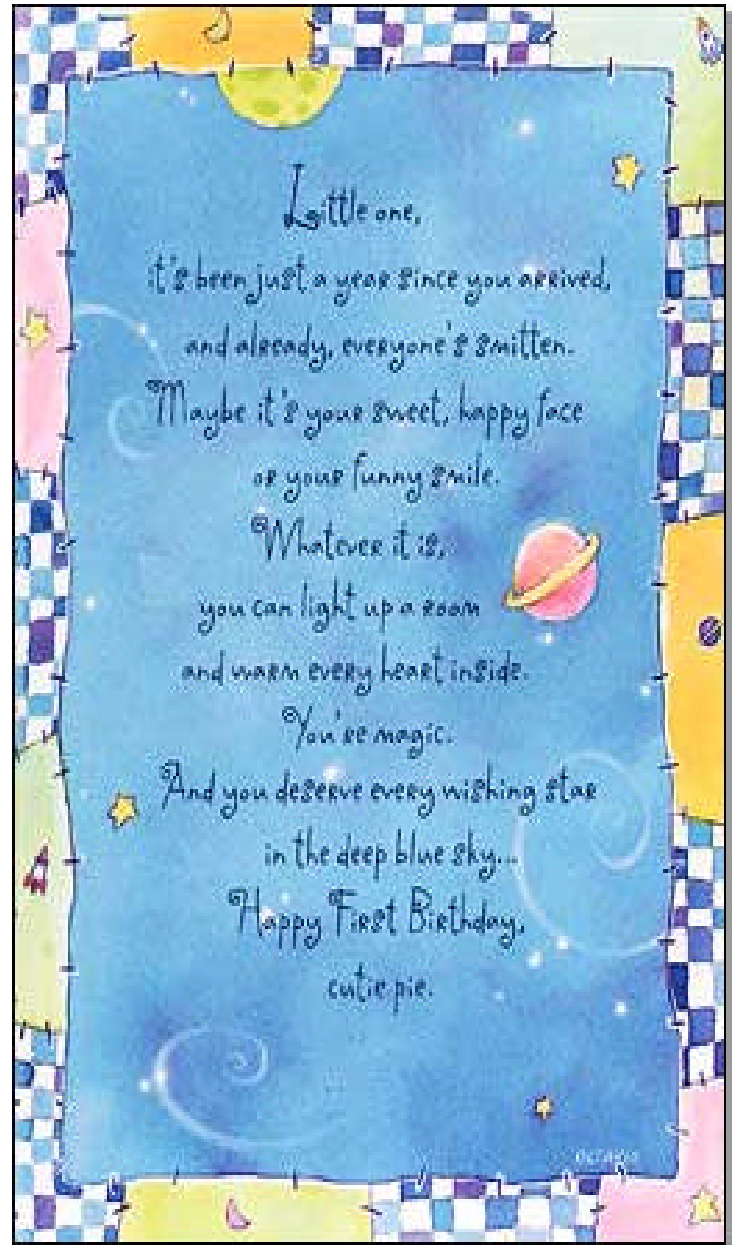 Little one,
it's been just a year since you arrived,
and already, everyone's smitten.
Maybe it's your sweet, happy face
or your funny smile.
Whatever it is,
you can light up a room
and warm every heart inside.
You're magic.
And you deserve every wishing star
in the deep blue sky...
Happy First Birthday,
cutie pie.